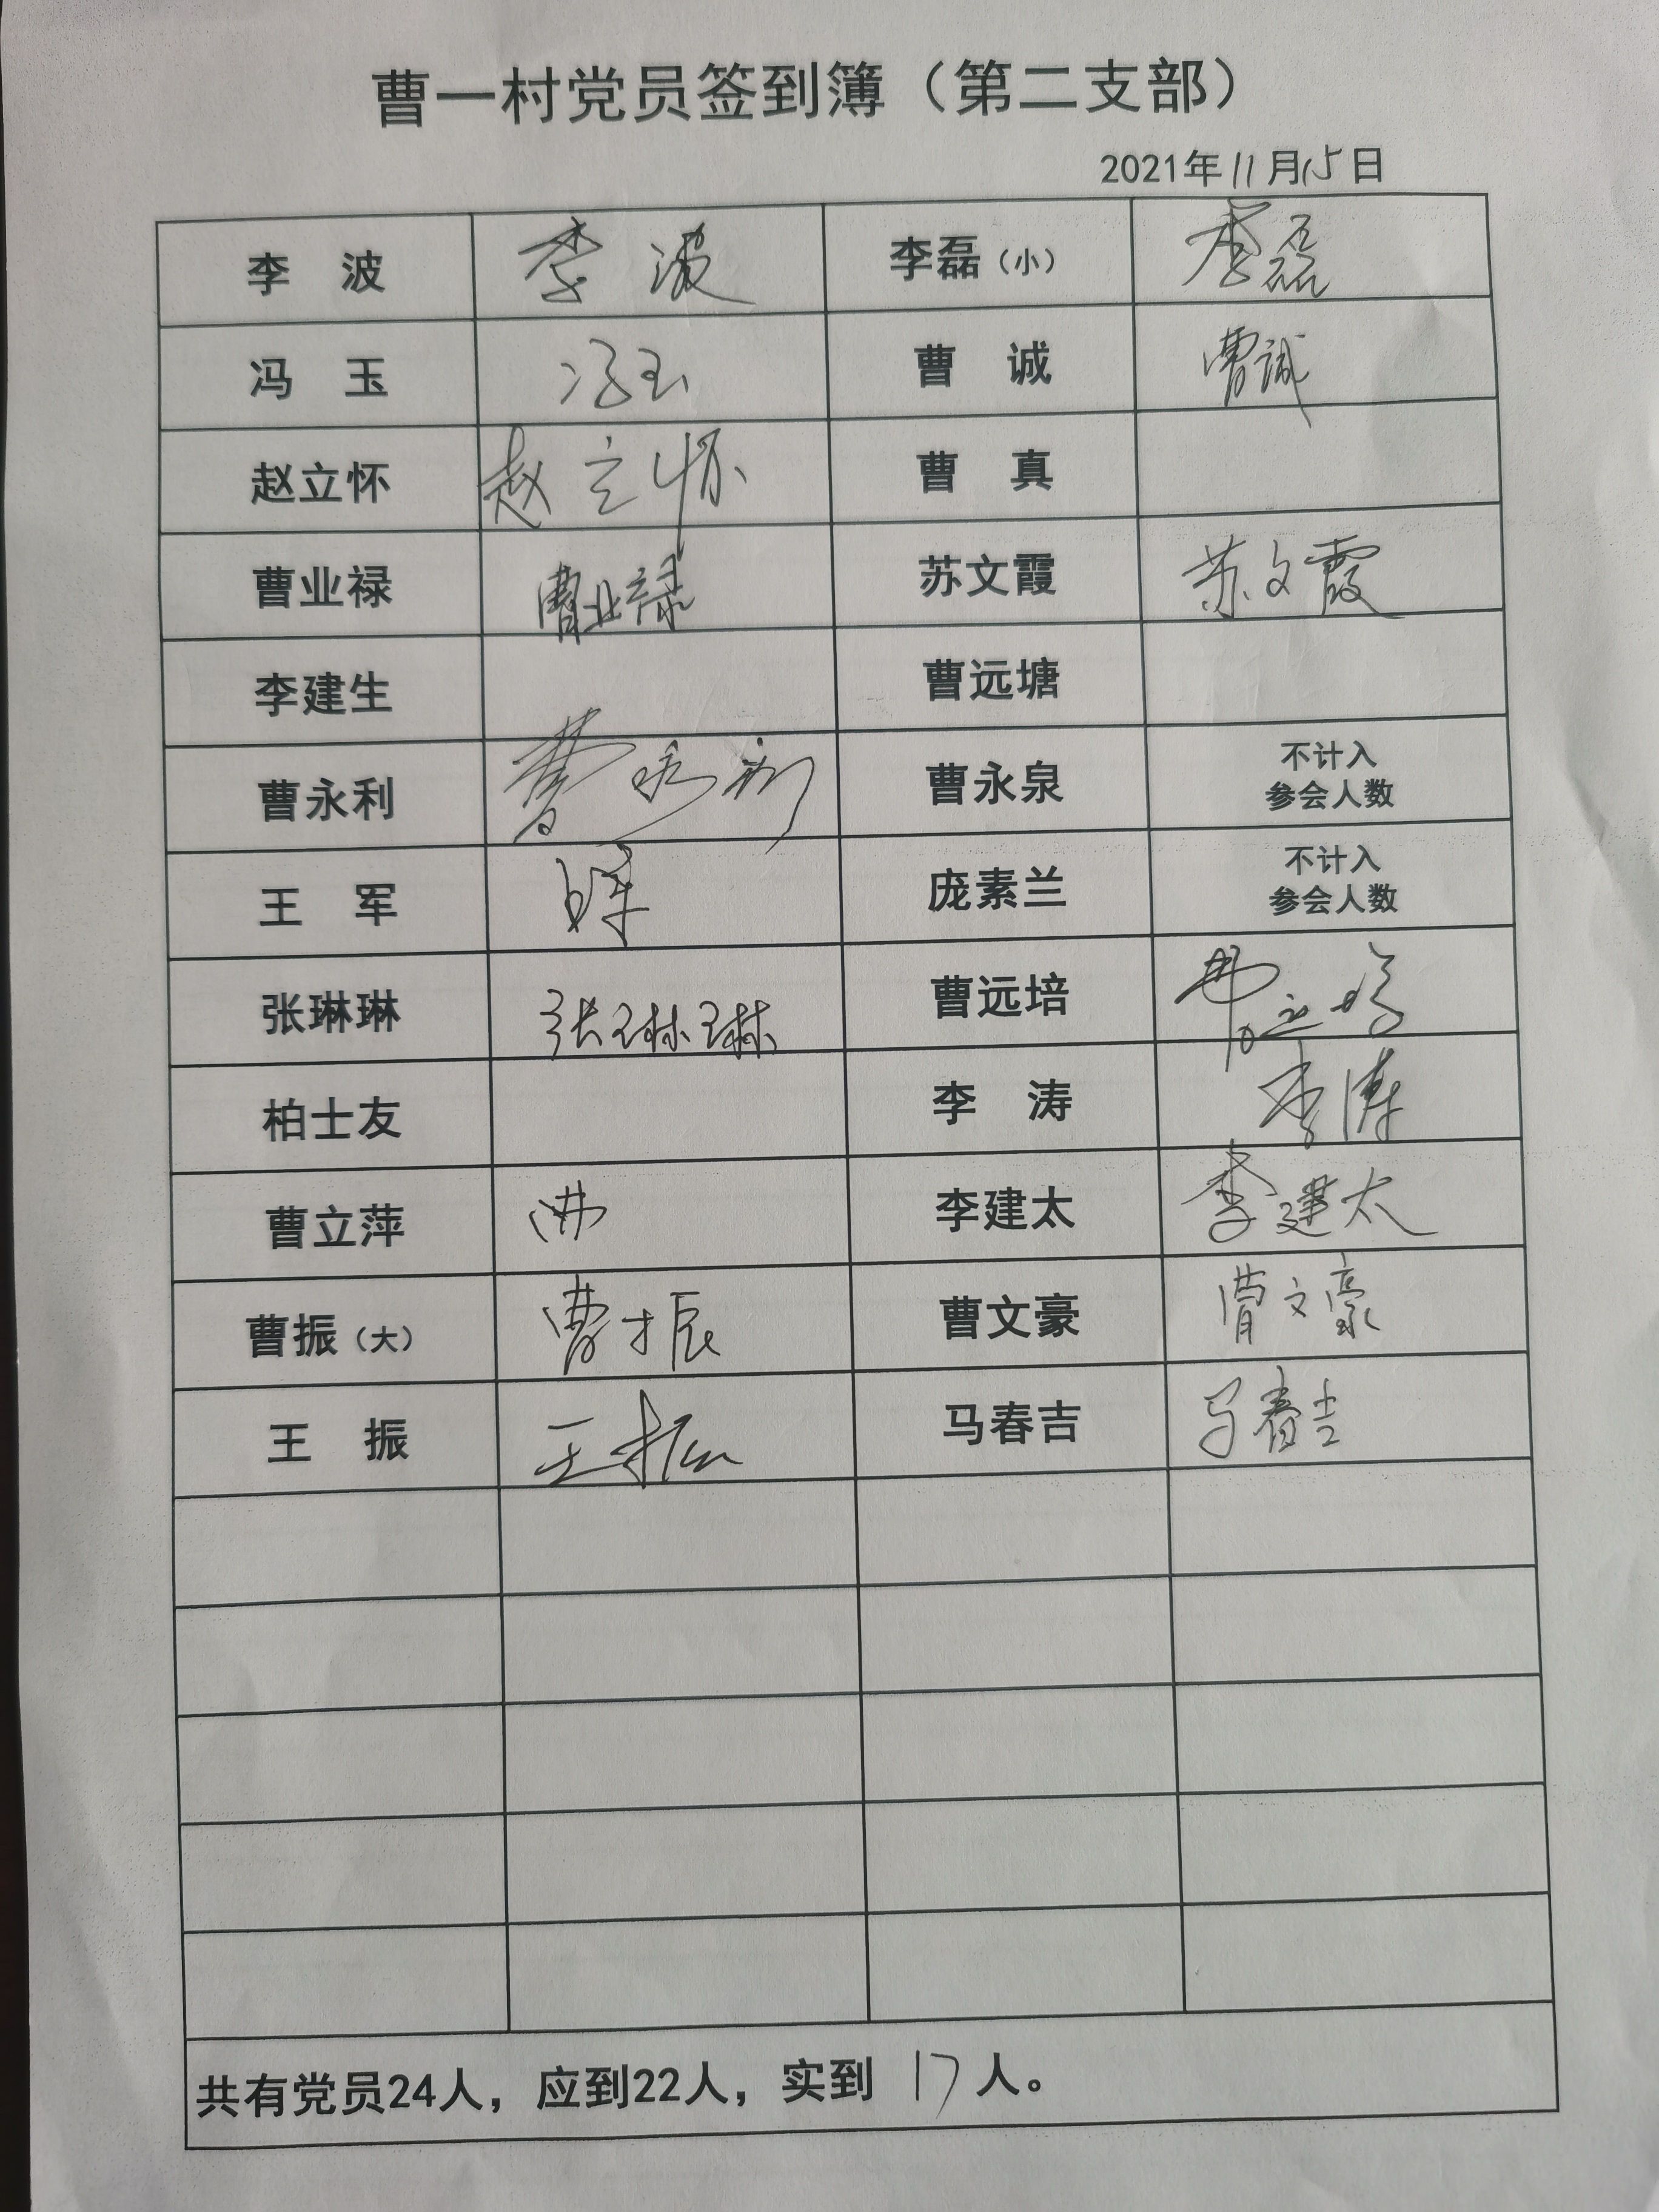 曹一村党员签到簿（第二支部）
2021年11月15日
李 波 李波 李磊（小） 李磊
冯 玉 冯玉 曹 诚 曹诚
赵立怀 赵立怀 曹 真
曹业禄 曹业禄 苏文霞 苏文霞
李建生 曹远塘
曹永利 曹永利 曹永泉 不计入
参会人数
王 军 庞素兰 不计入
参会人数
张琳琳 张琳琳 曹远培 曹远培
柏士友 李 涛 李涛
曹立萍 李建太 李建太
曹振（大） 曹振 曹文豪 曹文豪
王 振 王振 马春吉 马春吉
共有党员24人，应到22人，实到 17人。